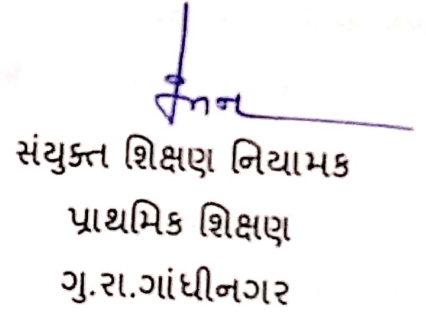 સંયુક્ત શિક્ષણ નિયામક
પ્રાથમિક શિક્ષણ
ગુ.રા.ગાંધીનગર